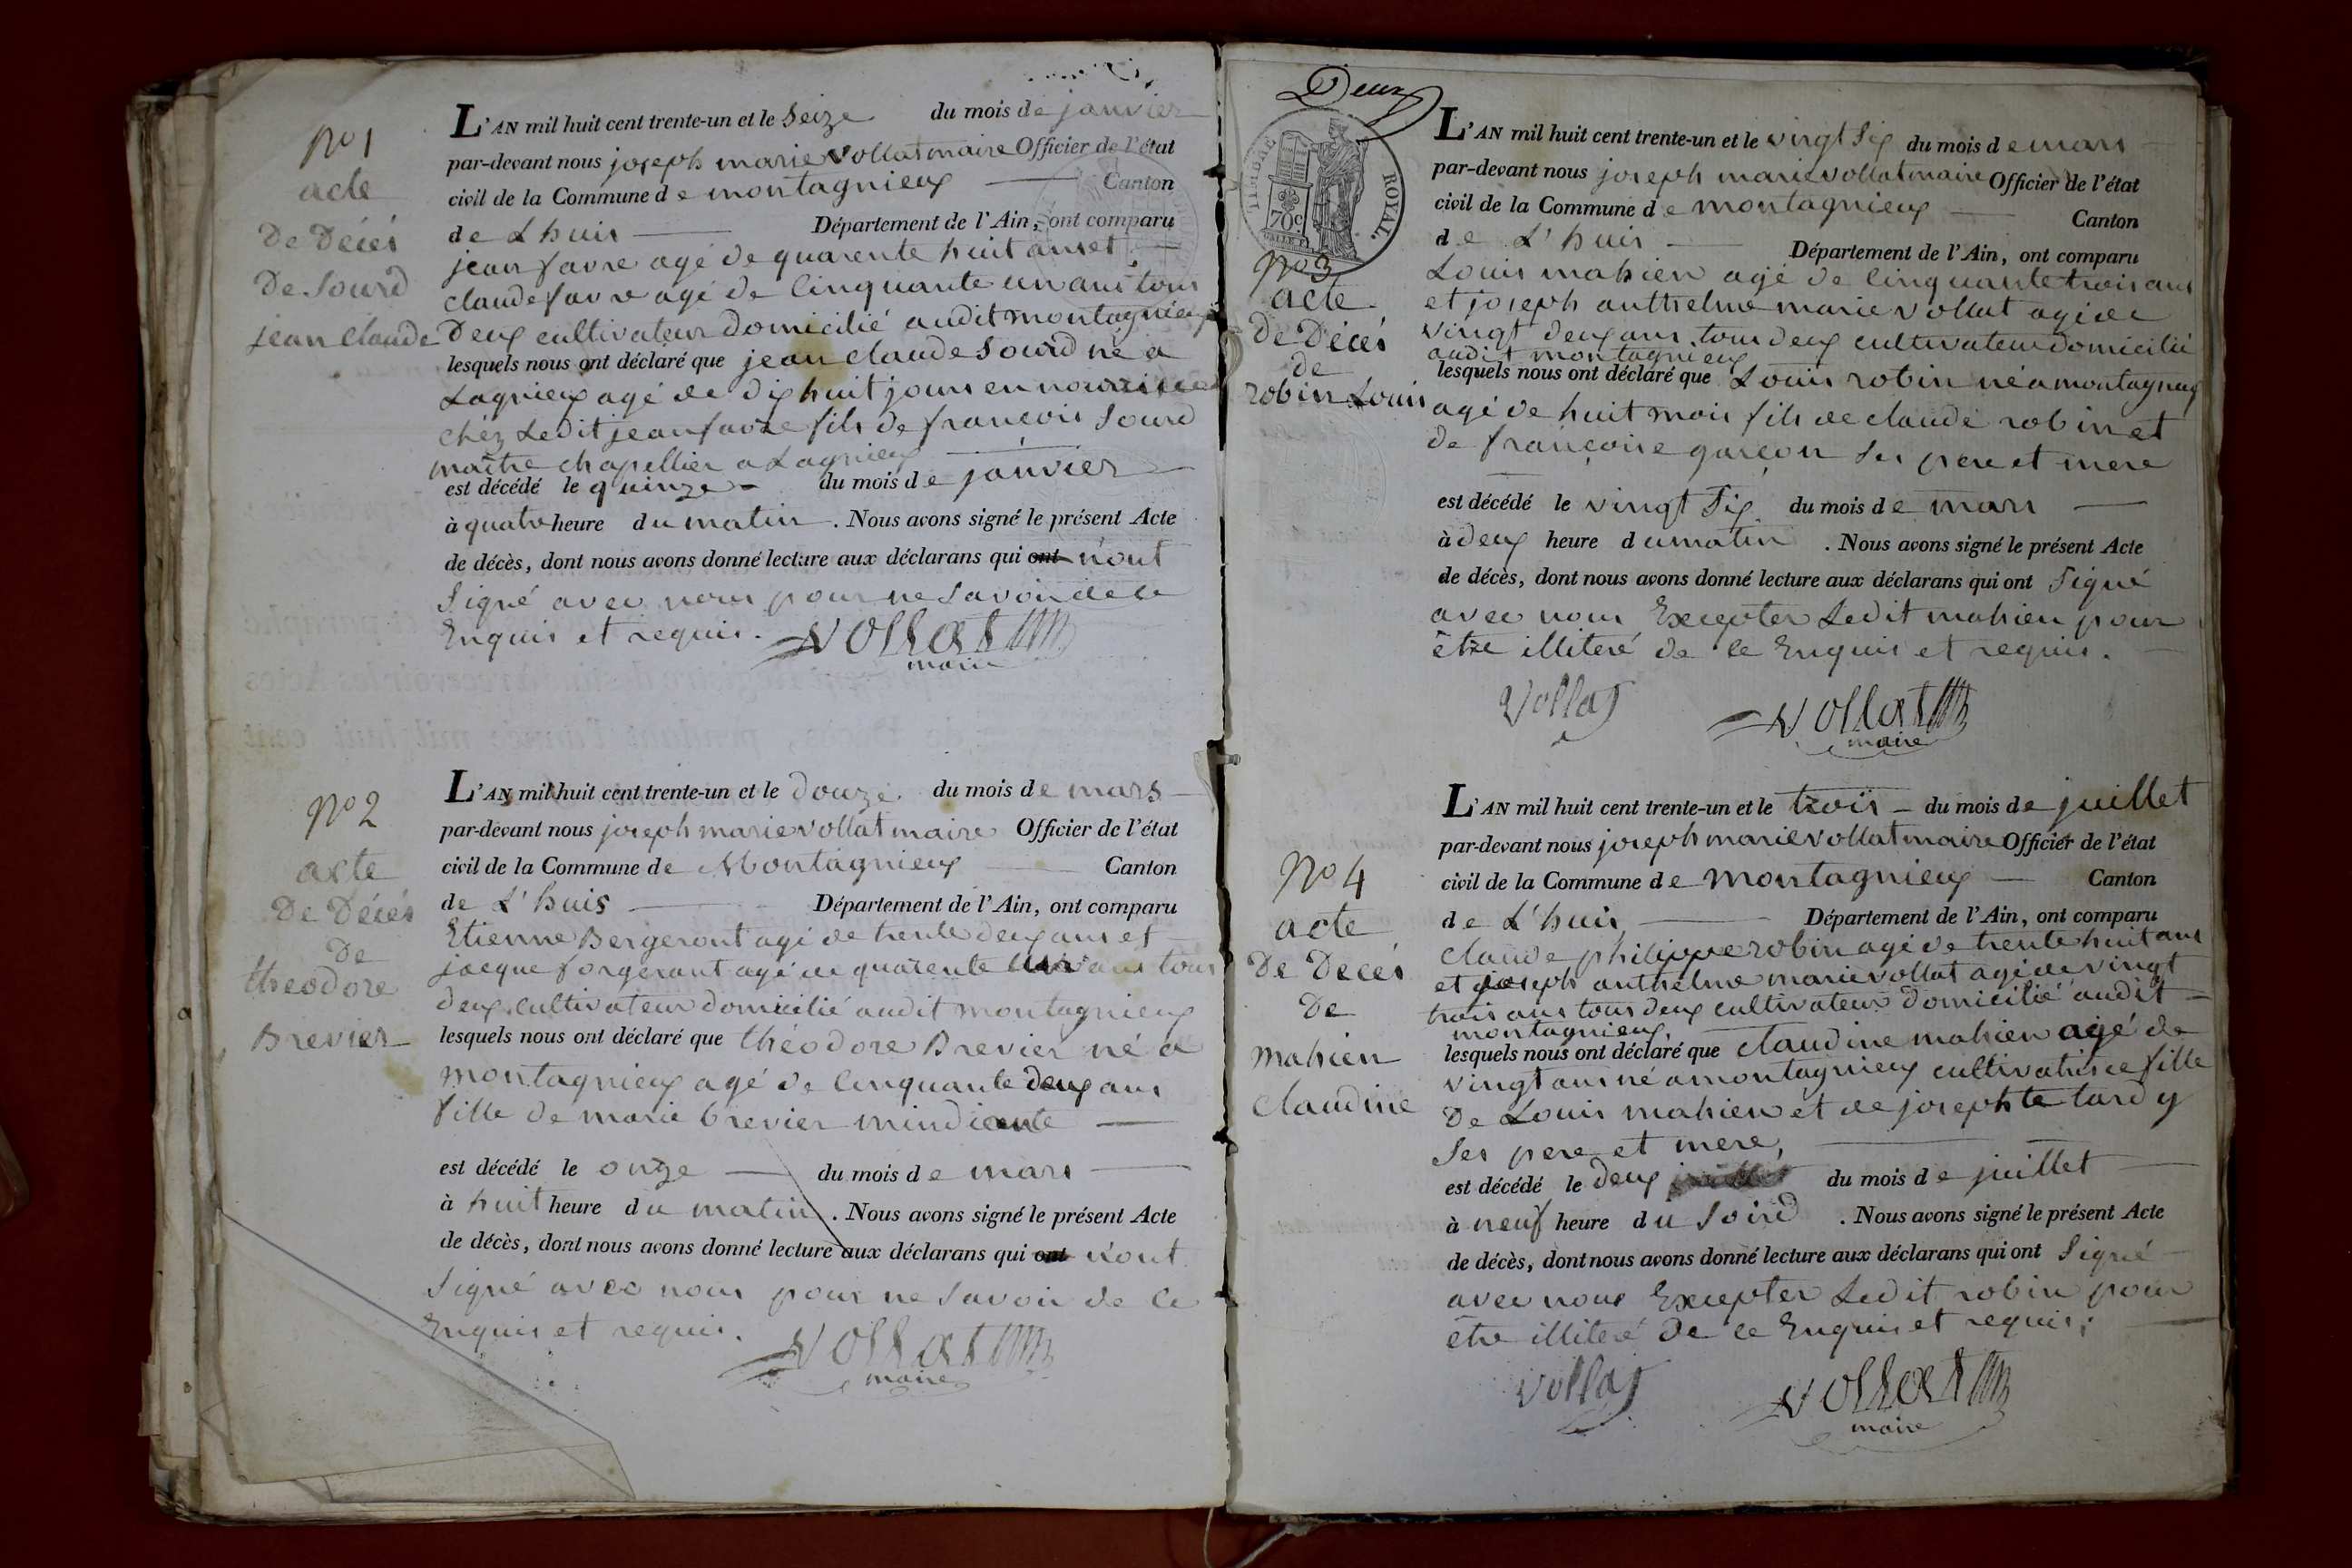 N° 1
acte
De Décés
De Sourd
jean claude
L'AN mil huit cent trente-un et le Seize du mois de janvier
par-devant nous joseph marie vollat maire Officier de l'état
civil de la Commune de montagnieux Canton
de Lhuis Département de l'Ain, ont comparu
jean favre agé de quarente huit ans et
claude favre agé de Cinquante un ans tous
Deux cultivateur Domicilié audit montagnieux
lesquels nous ont déclaré que jean claude Sourd né a
Lagnieux agé de dix huit jours en nourrice
chéz Ledit jean favre fils de françois Sourd
maitre chapellier a Lagnieux
est décédé le quinze du mois de janvier
à quatre heure du matin. Nous avons signé le présent Acte
de décès, dont nous avons donné lecture aux déclarans qui ont n'ont
Signé avec nous pour ne Savoir de ce
Enquis et requis.
vollat
maire
N° 2
acte
De Décés
De
théodore
Brevier
L'AN mil huit cent trente-un et le douze du mois de mars
par-devant nous joseph marie vollat maire Officier de l'état
civil de la Commune de Montagnieux Canton
de L'huis Département de l'Ain, ont comparu
Etienne Bergeront agé de trente deux ans et
jacque forgeront agé de quarente ans tous
deux cultivateur domicilié audit montagnieux
lesquels nous ont déclaré que théodore Brevier né a
montagnieux agé de Cinquante deux ans
fille de marie brevier mindiante
est décédé le onze du mois de mars
à huit heure du matin. Nous avons signé le présent Acte
de décès, dont nous avons donné lecture aux déclarans qui ont n'ont
Signé avec nous pour ne Savoir de ce
Enquis et requis.
vollat
maire
Deux
TIMBRE ROYAL
70c
N° 3
acte
De Décés
de
robin Louis
L'AN mil huit cent trente-un et le vingt Six du mois de mars
par-devant nous joseph marie vollat maire Officier de l'état
civil de la Commune de montagnieux Canton
de L'huis Département de l'Ain, ont comparu
Louis mahien agé de Cinquante trois ans
et joseph anthelme marie vollat agé de
vingt deux ans tous deux cultivateur domicilié
audit montagnieux
lesquels nous ont déclaré que Louis robin né a montagnieux
agé de huit mois fils de claude robin et
de françoise garçon Ses pere et mere
est décédé le vingt Six du mois de mars
à deux heure du matin. Nous avons signé le présent Acte
de décès, dont nous avons donné lecture aux déclarans qui ont Signé
avec nous Excepter Ledit mahien pour
être illiteré de ce Enquis et requis.
Vollat
vollat
maire
N° 4
acte
De Décés
De
mahien
Claudine
L'AN mil huit cent trente-un et le trois du mois de juillet
par-devant nous joseph marie vollat maire Officier de l'état
civil de la Commune de montagnieux Canton
de L'huis Département de l'Ain, ont comparu
claude philippe robin agé de trente huit ans
et joseph anthelme marie vollat agé de vingt
trois ans tous deux cultivateur domicilié audit
montagnieux.
lesquels nous ont déclaré que claudine mahien agé de
vingt ans né a montagnieux cultivatrice fille
De Louis mahien et de josephte tardy
Ses pere et mere,
est décédé le deux du mois de juillet
à neuf heure du Soird. Nous avons signé le présent Acte
de décès, dont nous avons donné lecture aux déclarans qui ont Signé
avec nous Excepter Ledit robin pour
être illiteré De ce Enquis et requis.
vollat
vollat
maire